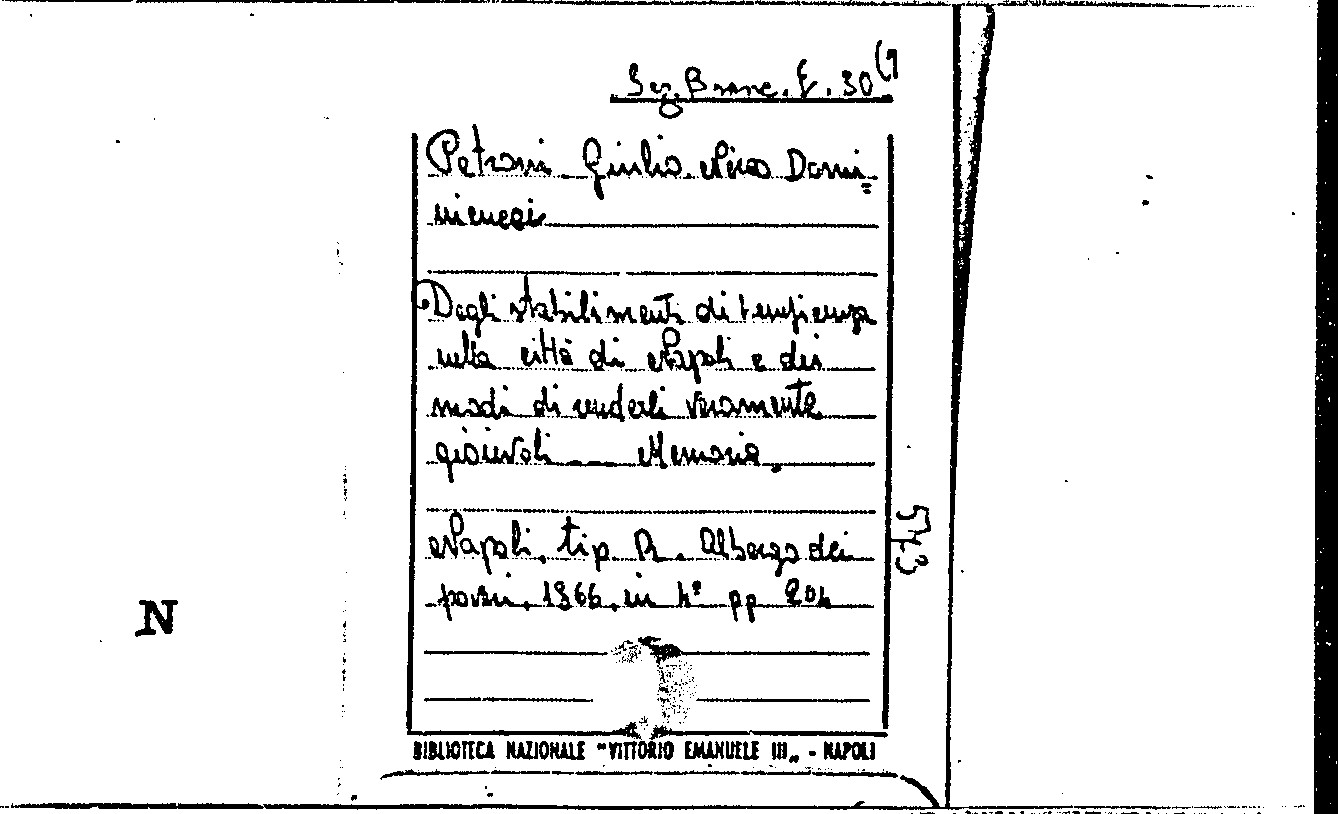 Sez. Branc. E. 30 (7
Petroni Giulio. Nico Domi=
nicucci
Degli stabilimenti di beneficenza
nella città di Napoli e dei
modi di renderli veramente
giovevoli Memoria.
Napoli, tip. R. Albergo dei
poveri, 1866, in 4° pp 204
543
N
BIBLIOTECA NAZIONALE "VITTORIO EMANUELE III„ - NAPOLI